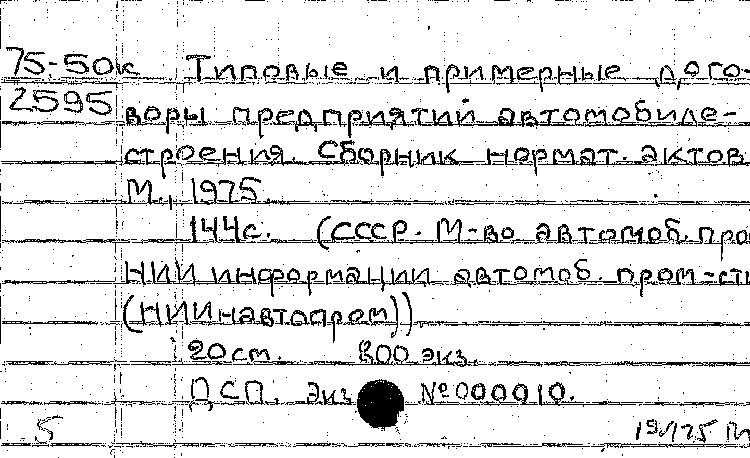 75-50к Типовые и примерные дого-
2595 воры предприятий автомобиле-
строения. Сборник нормат. актов.
М., 1975.
144с. (СССР. М-во автомоб. про
НИИ информации автомоб. пром-ст
(НИИНавтопром)).
20см. 800 экз.
ДСП. Экз № 000010.
5